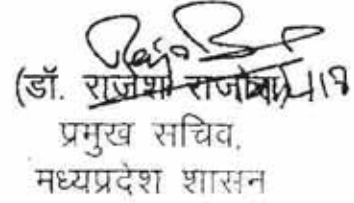 (डॉ. राजेश राजौरा)
प्रमुख सचिव,
मध्यप्रदेश शासन